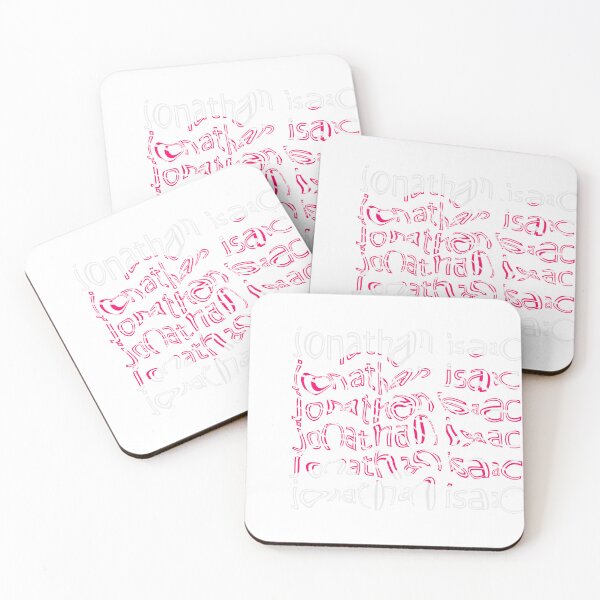 jonathan isaac
jonathan isaac
jonathan
jonathan isaac
jonathan isaac
jonathan isaac
jonathan isaac
jonathan isaac
isaac
jonathan isaac
jonathan isaac
jonathan isaac
jonathan isaac
jonathan
jonathan isaac
jonathan isaac
jonathan isaac
jonathan isaac
jonathan isaac
jonathan isaac